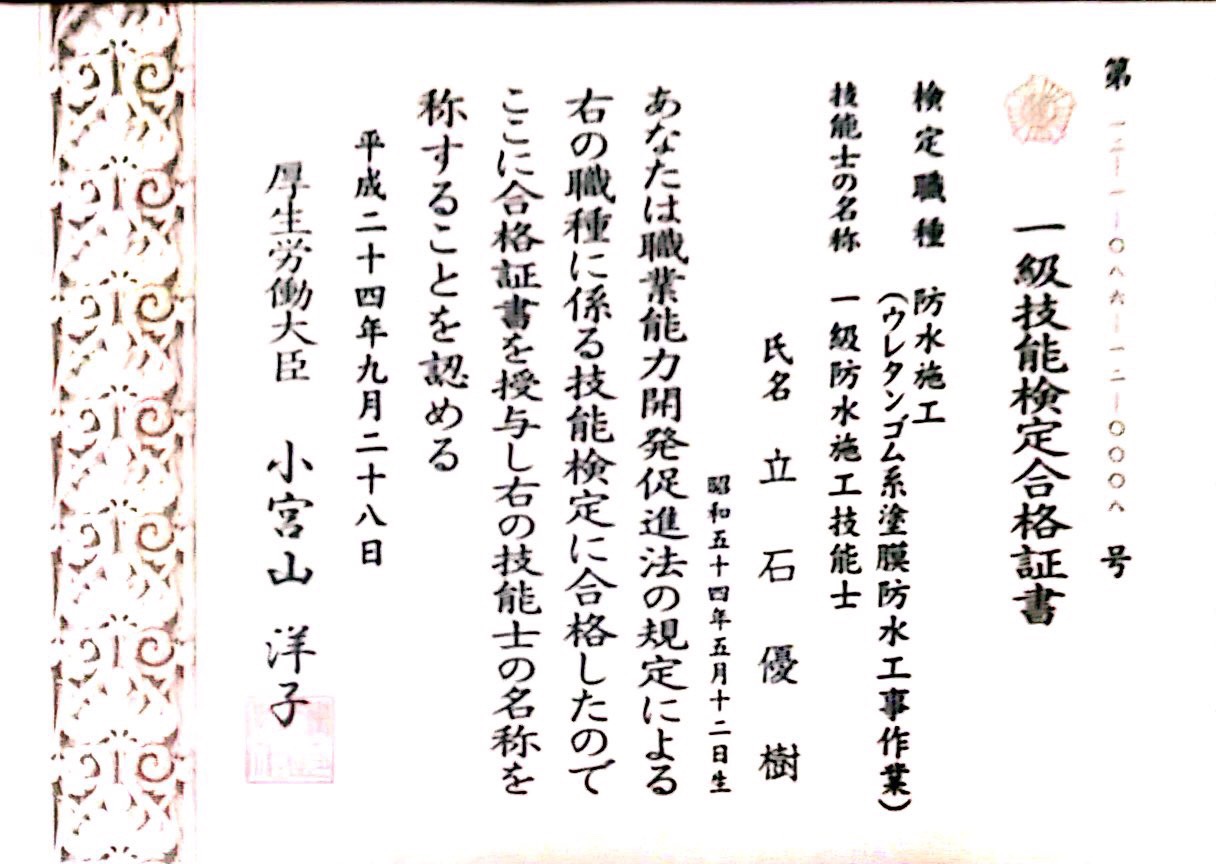 第一二-一-〇八六-一二-〇〇〇八号
一級技能検定合格証書
検定職種 防水施工
(ウレタンゴム系塗膜防水工事作業)
技能士の名称 一級防水施工技能士
氏名 立石優樹
昭和五十四年五月十二日生
あなたは職業能力開発促進法の規定による
右の職種に係る技能検定に合格したので
ここに合格証書を授与し右の技能士の名称を
称することを認める
平成二十四年九月二十八日
厚生労働大臣 小宮山 洋子